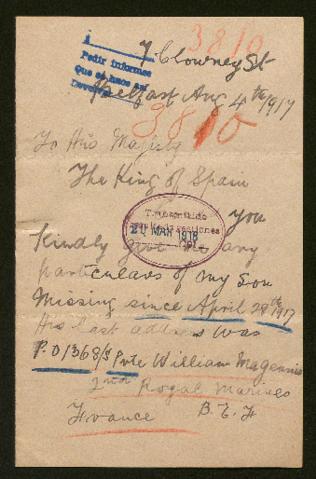 3810
7 Clowney St
Pedir informes
Que se hace así
Belfast Aug 4th 1917
3810
To His Majesty
The King of Spain
Transmitido
21 MAR 1918
you
Kindly give me any
particulars of my Son
Missing since April 28th 1917
His last address was
P.O 1368/S Pvte William Magennis
2nd Royal Marines
France B. E. F